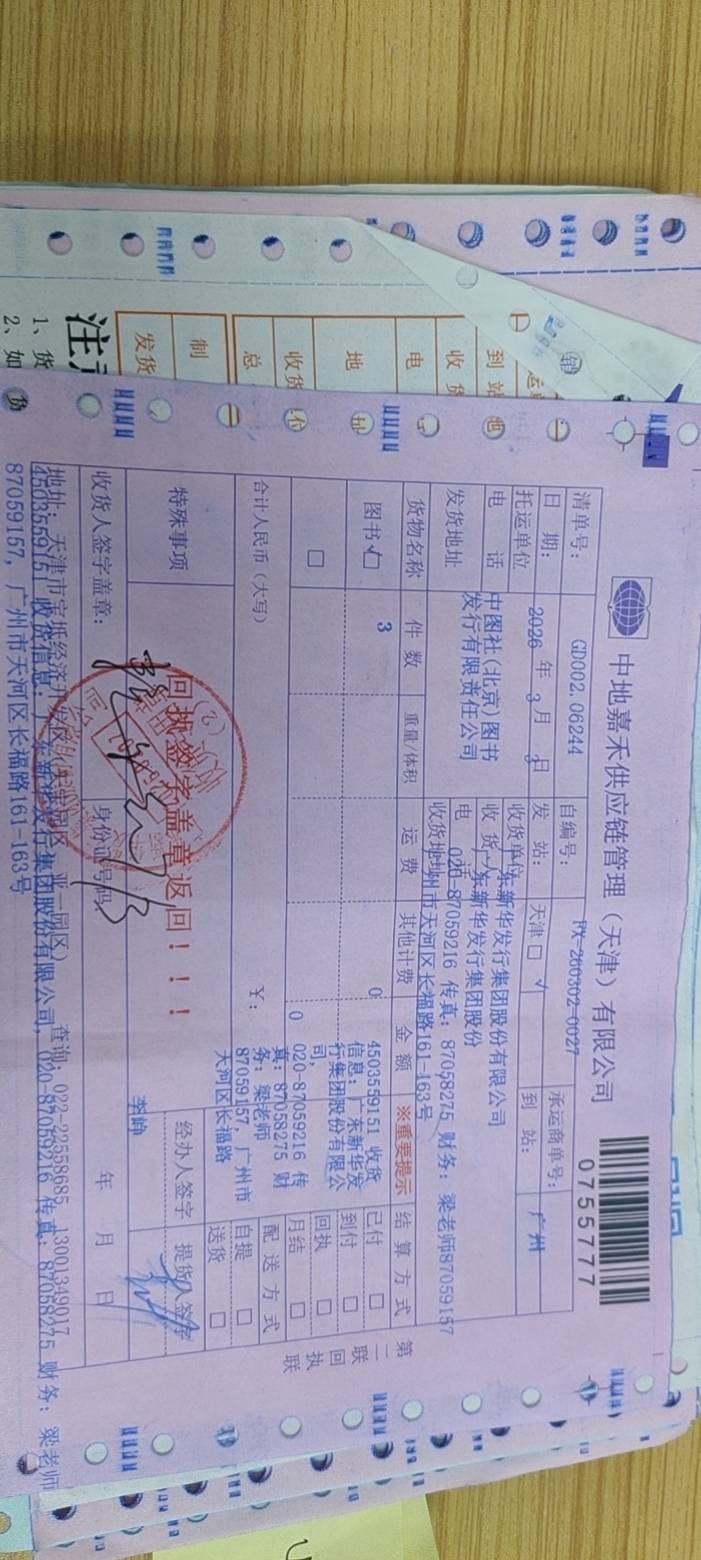 中地嘉禾供应链管理（天津）有限公司
0755777
清单号：
GD002.06244
自编号：
FX-260302-0027
承运商单号：
日 期：
2026 年 3 月 3 日
发 站：
天津 □ √
到 站：
广州
托运单位
中图社(北京)图书发行有限责任公司
收货单位
广东新华发行集团股份有限公司
电 话
收 货 人
广东新华发行集团股份
电 话
020-87059216 传真: 87058275 财务: 梁老师87059157
发货地址
收货地址
广州市天河区长福路161-163号
货物名称
件 数
重量/体积
运 费
其他计费
金 额
※重要提示
结 算 方 式
图书 □
3
0
0
4503559151 收货
信息: 广东新华发
行集团股份有限公
司,
020-87059216 传
真: 87058275 财
务: 梁老师
87059157, 广州市
天河区长福路
已付 □
到付 □
回执 □
月结 □
配 送 方 式
自提 □
送货 □
□
合计人民币（大写）
￥:
特殊事项
回执签字盖章返回！！！
经办人签字
提货人签字
李峥
收货人签字盖章：
身份证号码:
年 月 日
地址：天津市宝坻经济开发区
查询：022-22558685 13001349017
4503559151 收货信息: 广东新华发行集团股份有限公司, 020-87059216 传真: 87058275 财务: 梁老师
87059157, 广州市天河区长福路161-163号
第二联 回执联
到 站
电
地
收货
总
制
发货
注
1、货
2、如